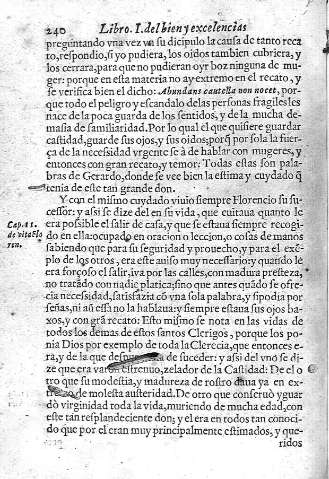 240 Libro. I. del bien y excelencias
preguntando vna vez vn su dicipulo la causa de tanto reca
to, respondio, si yo pudiera, los oidos tambien cubriera, y
los cerrara, para que no pudieran oyr boz ninguna de mu-
ger: porque en esta materia no ay extremo en el recato, y
se verifica bien el dicho: Abundans cautella non nocet, por-
que todo el peligro y escandalo de las personas fragiles les
nace de la poca guarda de los sentidos, y de la mucha de-
masia de familiaridad. Por lo qual el que quisiere guardar
castidad, guarde sus ojos, y sus oidos; porq̃ por sola la fuer-
ça de la necessidad vrgente se à de hablar con mugeres, y
entonces con gran recato, y temor; Todas estas son pala-
bras de Gerardo, donde se vee bien la estima y cuydado q̃
tenia de este tan grande don.
Y con el mismo cuydado viuio siempre Florencio su su-
Cap. 11.
de vita Flo
ren.
cessor: y assi se dize del en su vida, que euitaua quanto le
era possible el salir de casa, y que se estaua siempre recogi-
do en ella: ocupado en oracion o leccion, o cosas de manos
sabiendo que para su seguridad y prouecho, y para el exẽ-
plo de los otros, era este auiso muy necessario: y quando le
era forçoso el salir, iva por las calles, con madura presteza,
no tratado con nadie platica; sino que antes quãdo se ofre-
cia necessidad, satisfazia cõ vna sola palabra, y si podia por
señas, ni aũ essa no la hablaua: y siempre estaua sus ojos ba-
xos, y con grã recato: Esto mismo se nota en las vidas de
todos los demas de estos santos Clerigos, porque los po-
nia Dios por exemplo de toda la Clerecia, que entonces e-
ra, y de la que despues de suceder: y assi del vno se di-
ze que era varon estrenuo, zelador de la Castidad: De el o
tro que su modestia, y madureza de rostro daua ya en ex-
tremo de molesta austeridad. De otro que conseruò y guar
dò virginidad toda la vida, muriendo de mucha edad, con
este tan resplandeciente don; y el era en todos tan conoci-
do que por el eran muy principalmente estimados, y que-
ridos